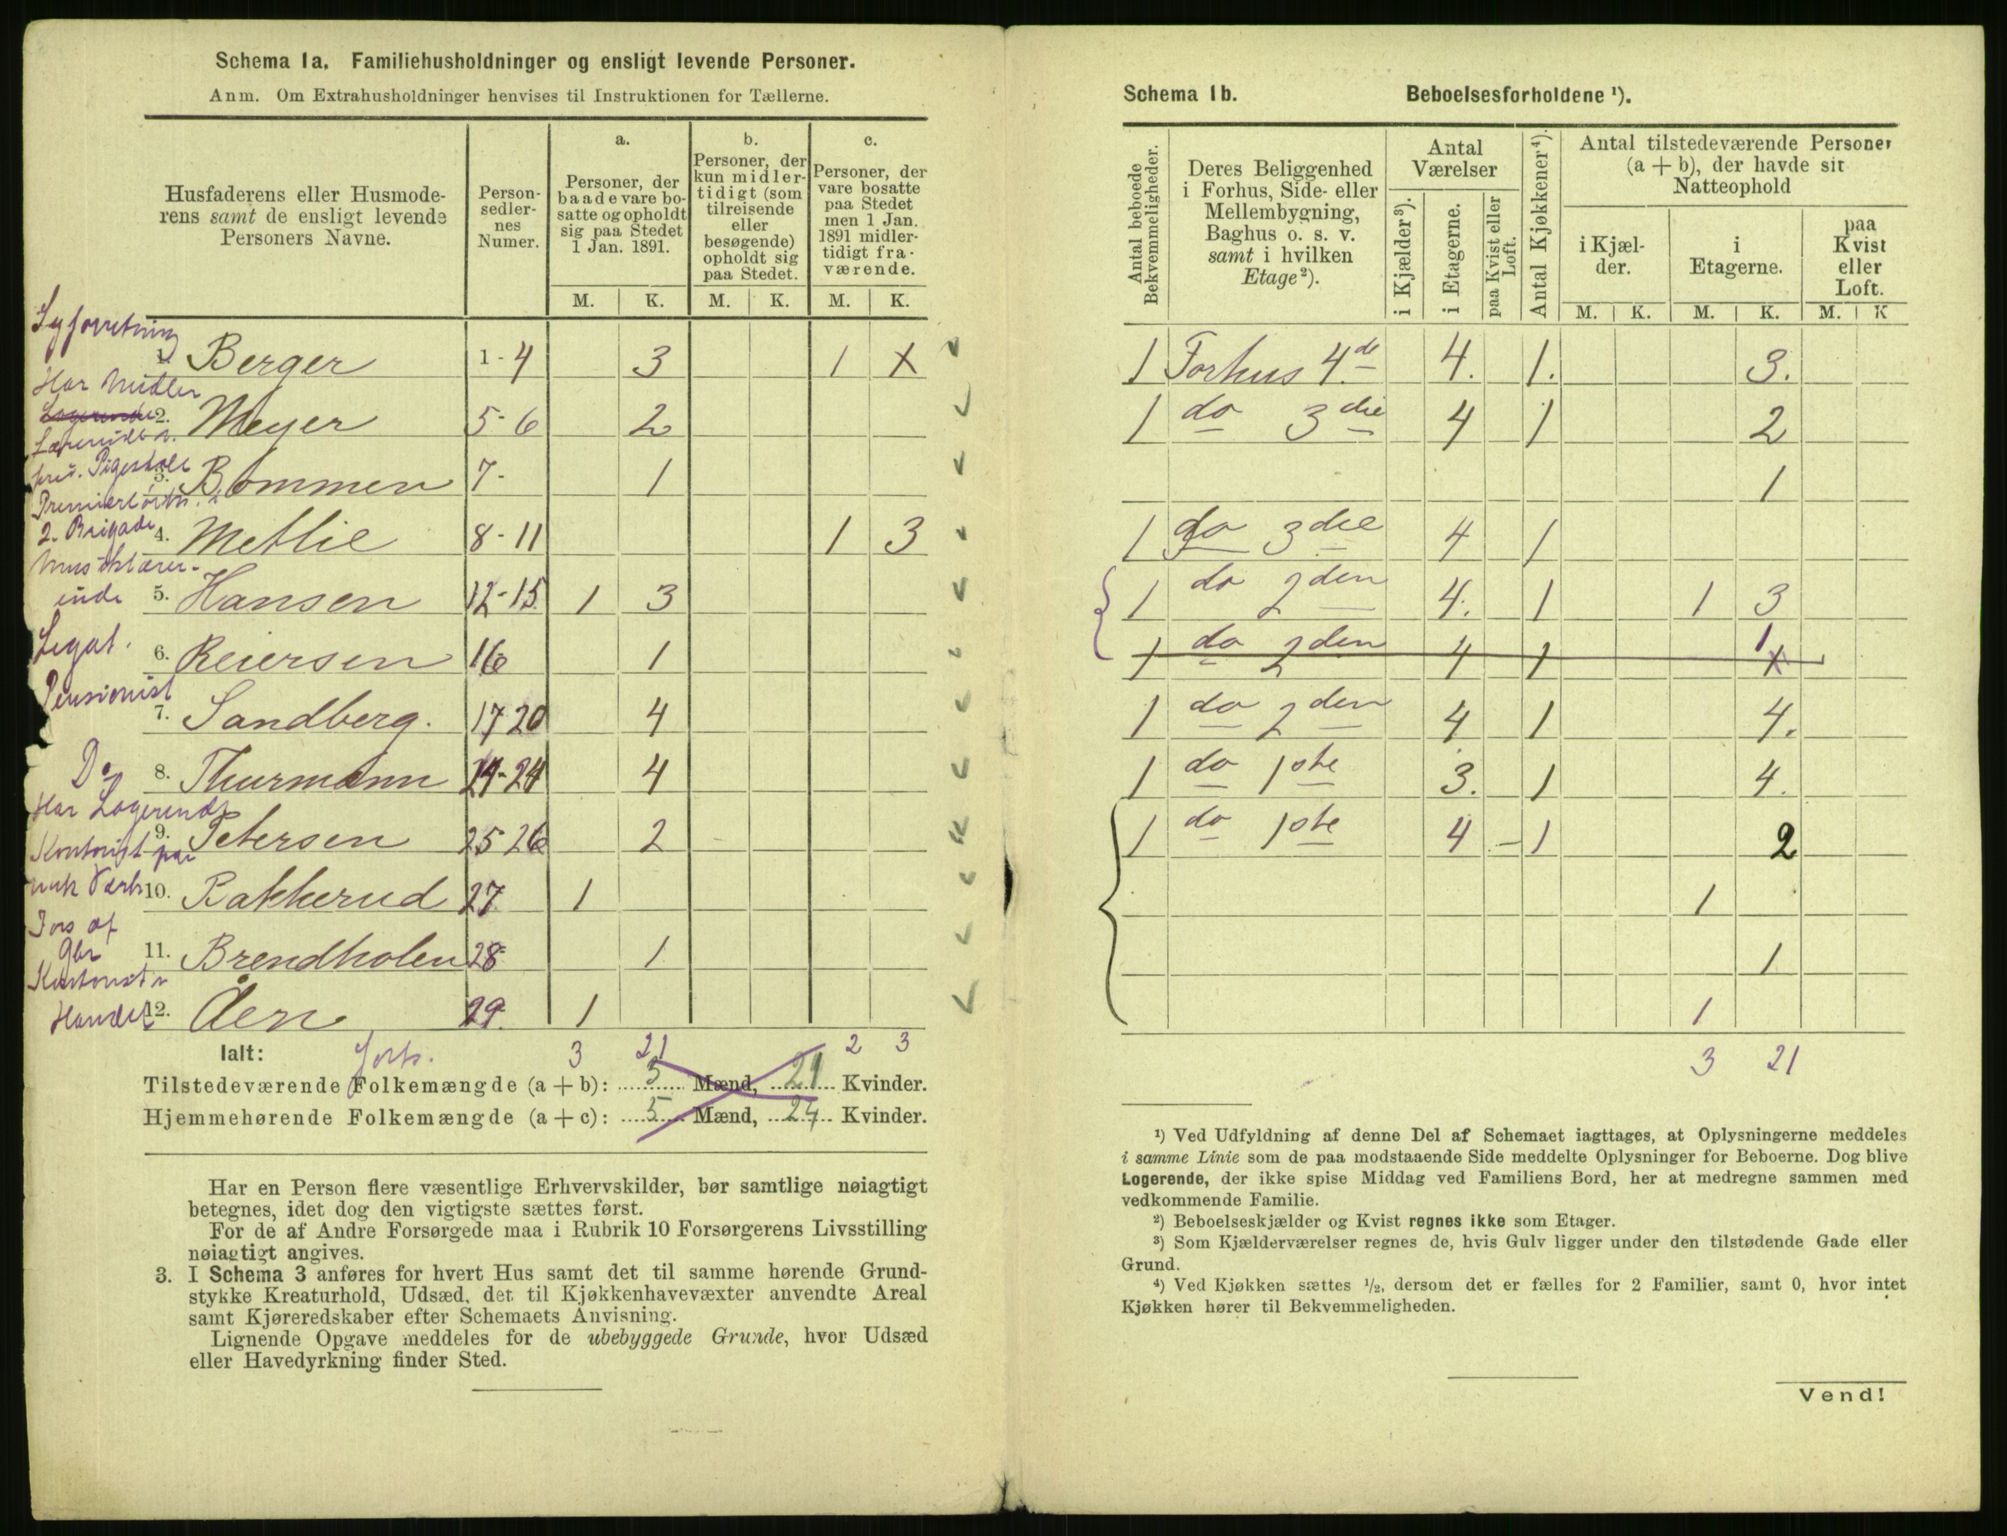 Schema 1a. Familiehusholdninger og ensligt levende Personer.
Anm. Om Extrahusholdninger henvises til Instruktionen for Tællerne.
Husfaderens eller Husmoderens samt de ensligt levende Personers Navne.
Personsedlernes Numer.
a. Personer, der baade vare bosatte og opholdt sig paa Stedet 1 Jan. 1891.
b. Personer, der kun midlertidigt (som tilreisende eller besøgende) opholdt sig paa Stedet.
c. Personer, der vare bosatte paa Stedet men 1 Jan. 1891 midlertidigt fraværende.
M. K. M. K. M. K.
Syforretning
1. Berger 1-4 3 1 x
Har Midler
Logerende
2. Meyer 5-6 2
priv. Pigeskole
3. Bommen 7- 1
2. Brigade
4. Methie 8-11 1 3
Musiklærerinde
5. Hansen 12-15 1 3
Legat.
6. Reiersen 16 1
Pensionist
7. Sandberg. 17-20 4
Do
8. Thurmann 21-24 4
Har Logerende
9. Petersen 25-26 2
Kontorist paa
mek Værks
10. Bakkerud 27 1
Fors af
11. Brendholen 28- 1
Kontorist v
Handel
12. Åen 29. 1
Ialt: 3 21 2 3
Forts.
Tilstedeværende Folkemængde (a + b): 3 Mænd, 21 Kvinder.
Hjemmehørende Folkemængde (a + c): 5 Mænd, 24 Kvinder.
Har en Person flere væsentlige Erhvervskilder, bør samtlige nøiagtigt
betegnes, idet dog den vigtigste sættes først.
For de af Andre Forsørgede maa i Rubrik 10 Forsørgerens Livsstilling
nøiagtigt angives.
3. I Schema 3 anføres for hvert Hus samt det til samme hørende Grund-
stykke Kreaturhold, Udsæd, det til Kjøkkenhavevæxter anvendte Areal
samt Kjøreredskaber efter Schemaets Anvisning.
Lignende Opgave meddeles for de ubebyggede Grunde, hvor Udsæd
eller Havedyrkning finder Sted.
Schema 1b. Beboelsesforholdene ¹).
Antal beboede Bekvemmeligheder.
Deres Beliggenhed i Forhus, Side- eller Mellembygning, Baghus o. s. v. samt i hvilken Etage²).
Antal Værelser
i Kjælder³).
i Etagerne.
paa Kvist eller Loft.
Antal Kjøkkener⁴).
Antal tilstedeværende Personer (a + b), der havde sit Natteophold
i Kjælder.
i Etagerne.
paa Kvist eller Loft.
M. K. M. K. M. K
1 Forhus 4de 4. 1. 3.
1 do 3die 4 1 2
1
1 do 3die 4 1
1 do 2den 4. 1 1 3
1 do 2den 4 1 1 x
1 do 2den 4 1 4.
1 do 1ste 3. 1 4.
1 do 1ste 4 - 1 2
1
1
1
3 21
¹) Ved Udfyldning af denne Del af Schemaet iagttages, at Oplysningerne meddeles
i samme Linie som de paa modstaaende Side meddelte Oplysninger for Beboerne. Dog blive
Logerende, der ikke spise Middag ved Familiens Bord, her at medregne sammen med
vedkommende Familie.
²) Beboelseskjælder og Kvist regnes ikke som Etager.
³) Som Kjælderværelser regnes de, hvis Gulv ligger under den tilstødende Gade eller
Grund.
⁴) Ved Kjøkken sættes ½, dersom det er fælles for 2 Familier, samt 0, hvor intet
Kjøkken hører til Bekvemmeligheden.
Vend!